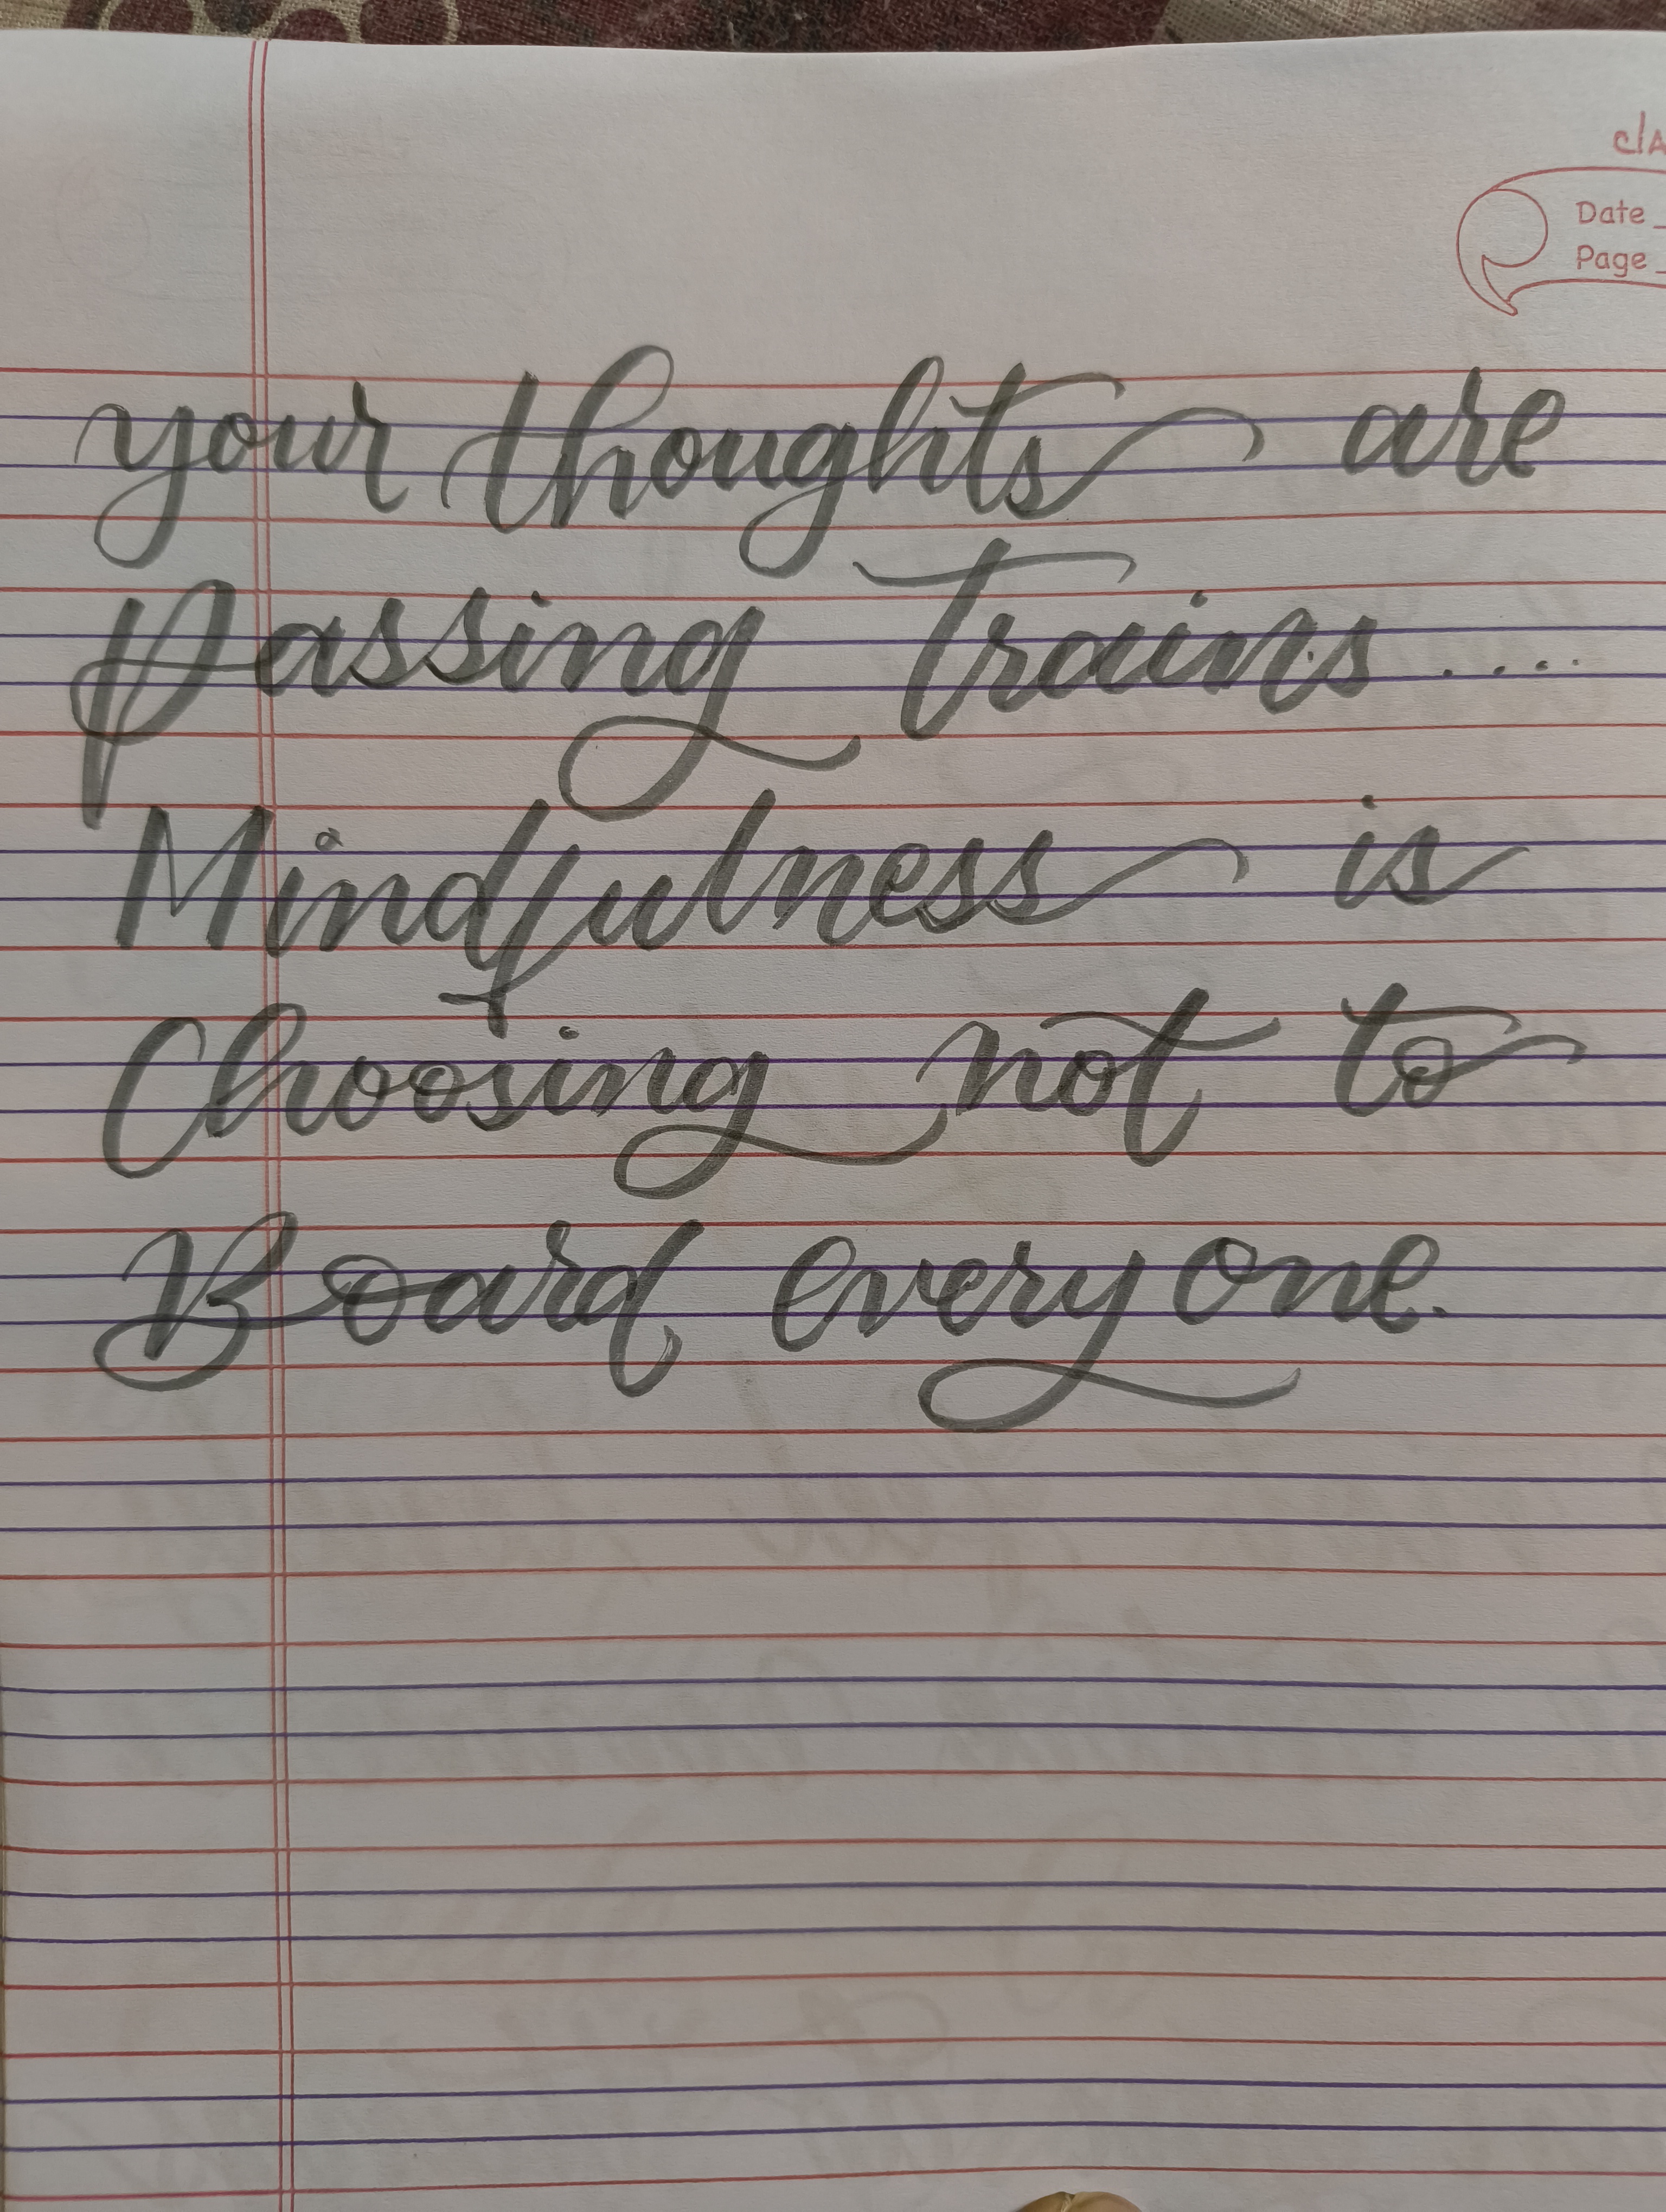 clA
Date
Page
your thoughts are
Passing trains ....
Mindfulness is
Choosing not to
Board every one.